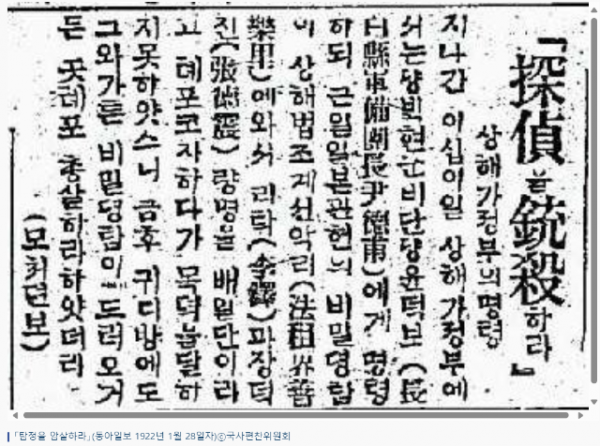 「探偵을 銃殺하라」
상해가정부의명령
지나간 이십이일 상해가정부에
서는댱빅현군비단댱윤덕보(長
白縣軍備團長尹德甫)에게 명령
하되 근일일본관헌의 비밀뎡탐
이 상해법조계션악리(法租界善
樂里)에와서 리탁(李鐸)과장덕
진(張德震) 량명을 배일단이라
고 톄포코자하다가 목덕을달하
지못하얏스니 금후 귀디방에도
그와가튼 비밀뎡탐이 드러오거
든 곳톄포 총살하라하얏더라
(모처뎐보)
「탐정을 암살하라」(동아일보 1922년 1월 28일자)ⓒ국사편찬위원회